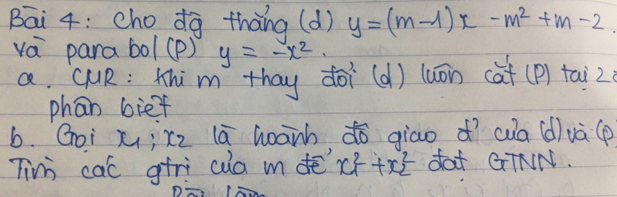 Bài 4: Cho đg thẳng (d) y=(m-1)x -m²+m-2.
và parabol (P) y = -x².
a. CMR: khi m thay đổi (d) luôn cắt (P) tại 2
phân biệt
b. Gọi x₁; x₂ là hoành độ giao đ' của (d) và (P
Tìm các gtrị của m để x₁²+x₂² đạt GTNN.
Bài làm